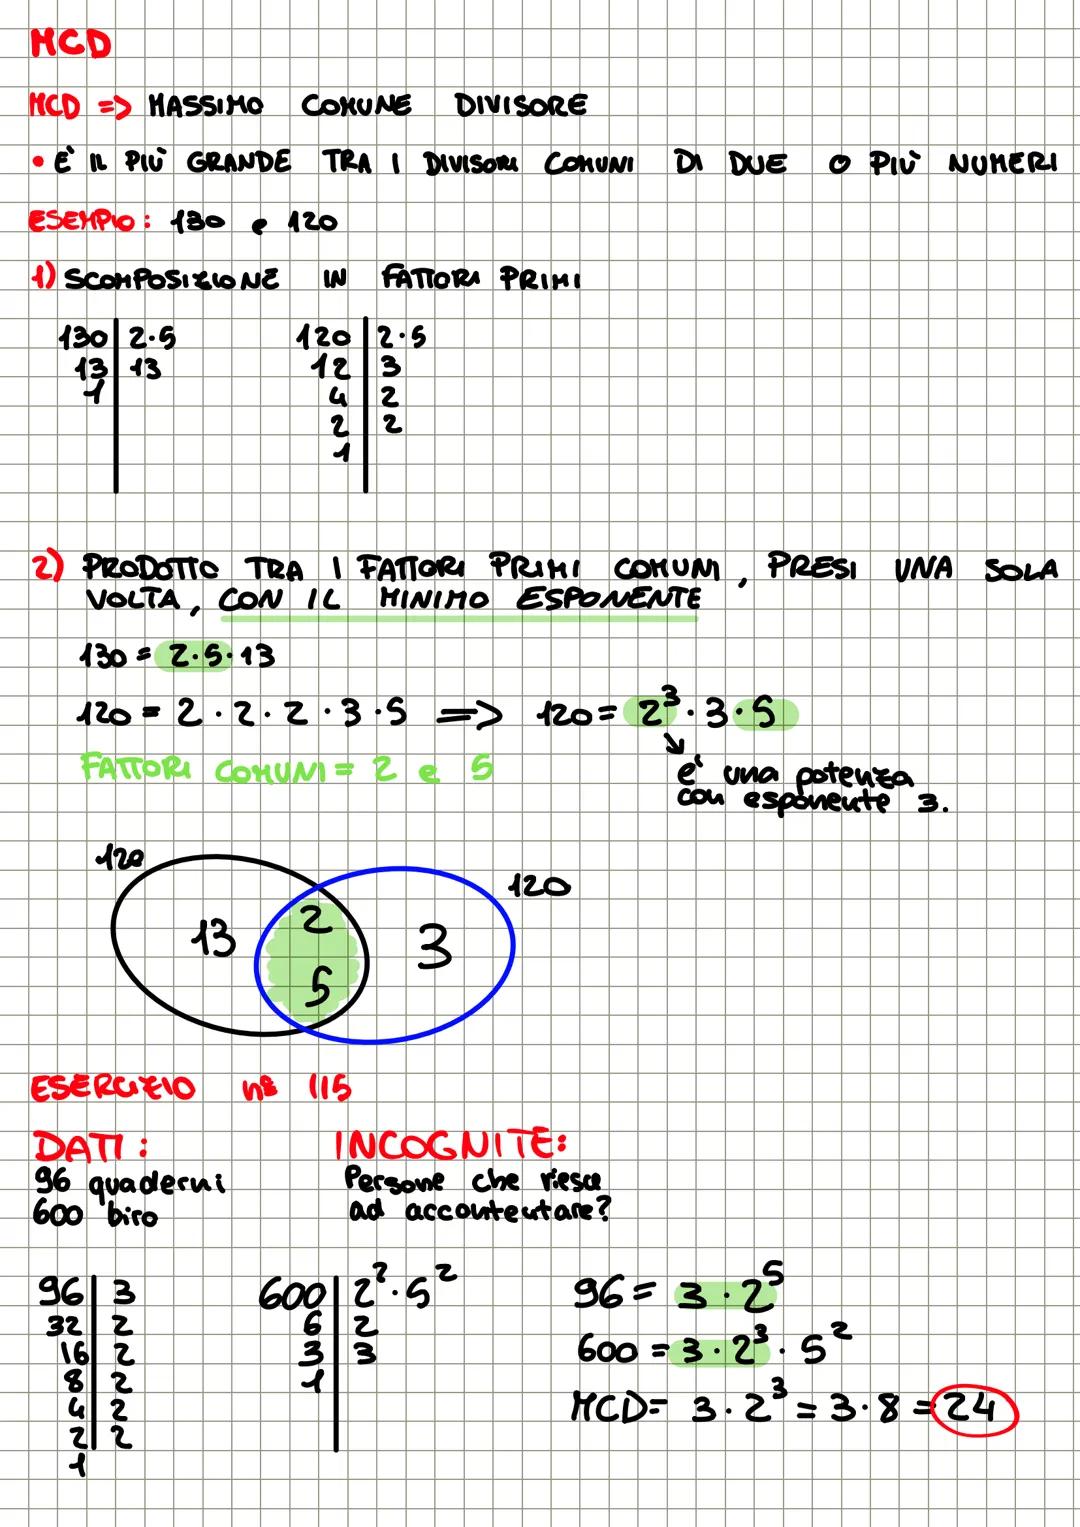 MCD
MCD => MASSIMO COMUNE DIVISORE
• E' IL PIU' GRANDE TRA I DIVISORI COMUNI DI DUE O PIU' NUMERI
ESEMPIO: 130 e 120
1) SCOMPOSIZIONE IN FATTORI PRIMI
130 | 2·5
13 | 13
1
120 | 2·5
12 | 3
4 | 2
2 | 2
1
2) PRODOTTO TRA I FATTORI PRIMI COMUNI, PRESI UNA SOLA
VOLTA, CON IL MINIMO ESPONENTE
130 = 2·5·13
120 = 2·2·2·3·5 => 120 = 2³·3·5
FATTORI COMUNI = 2 e 5
e' una potenza
con esponente 3.
120
120
13
2
5
3
ESERCIZIO nº 115
DATI:
96 quaderni
600 biro
INCOGNITE:
Persone che riesce
ad accontentare?
96 | 3
32 | 2
16 | 2
8 | 2
4 | 2
2 | 2
1
600 | 2²·5²
6 | 2
3 | 3
1
96 = 3·2⁵
600 = 3·2³·5²
MCD = 3·2³ = 3·8 = 24